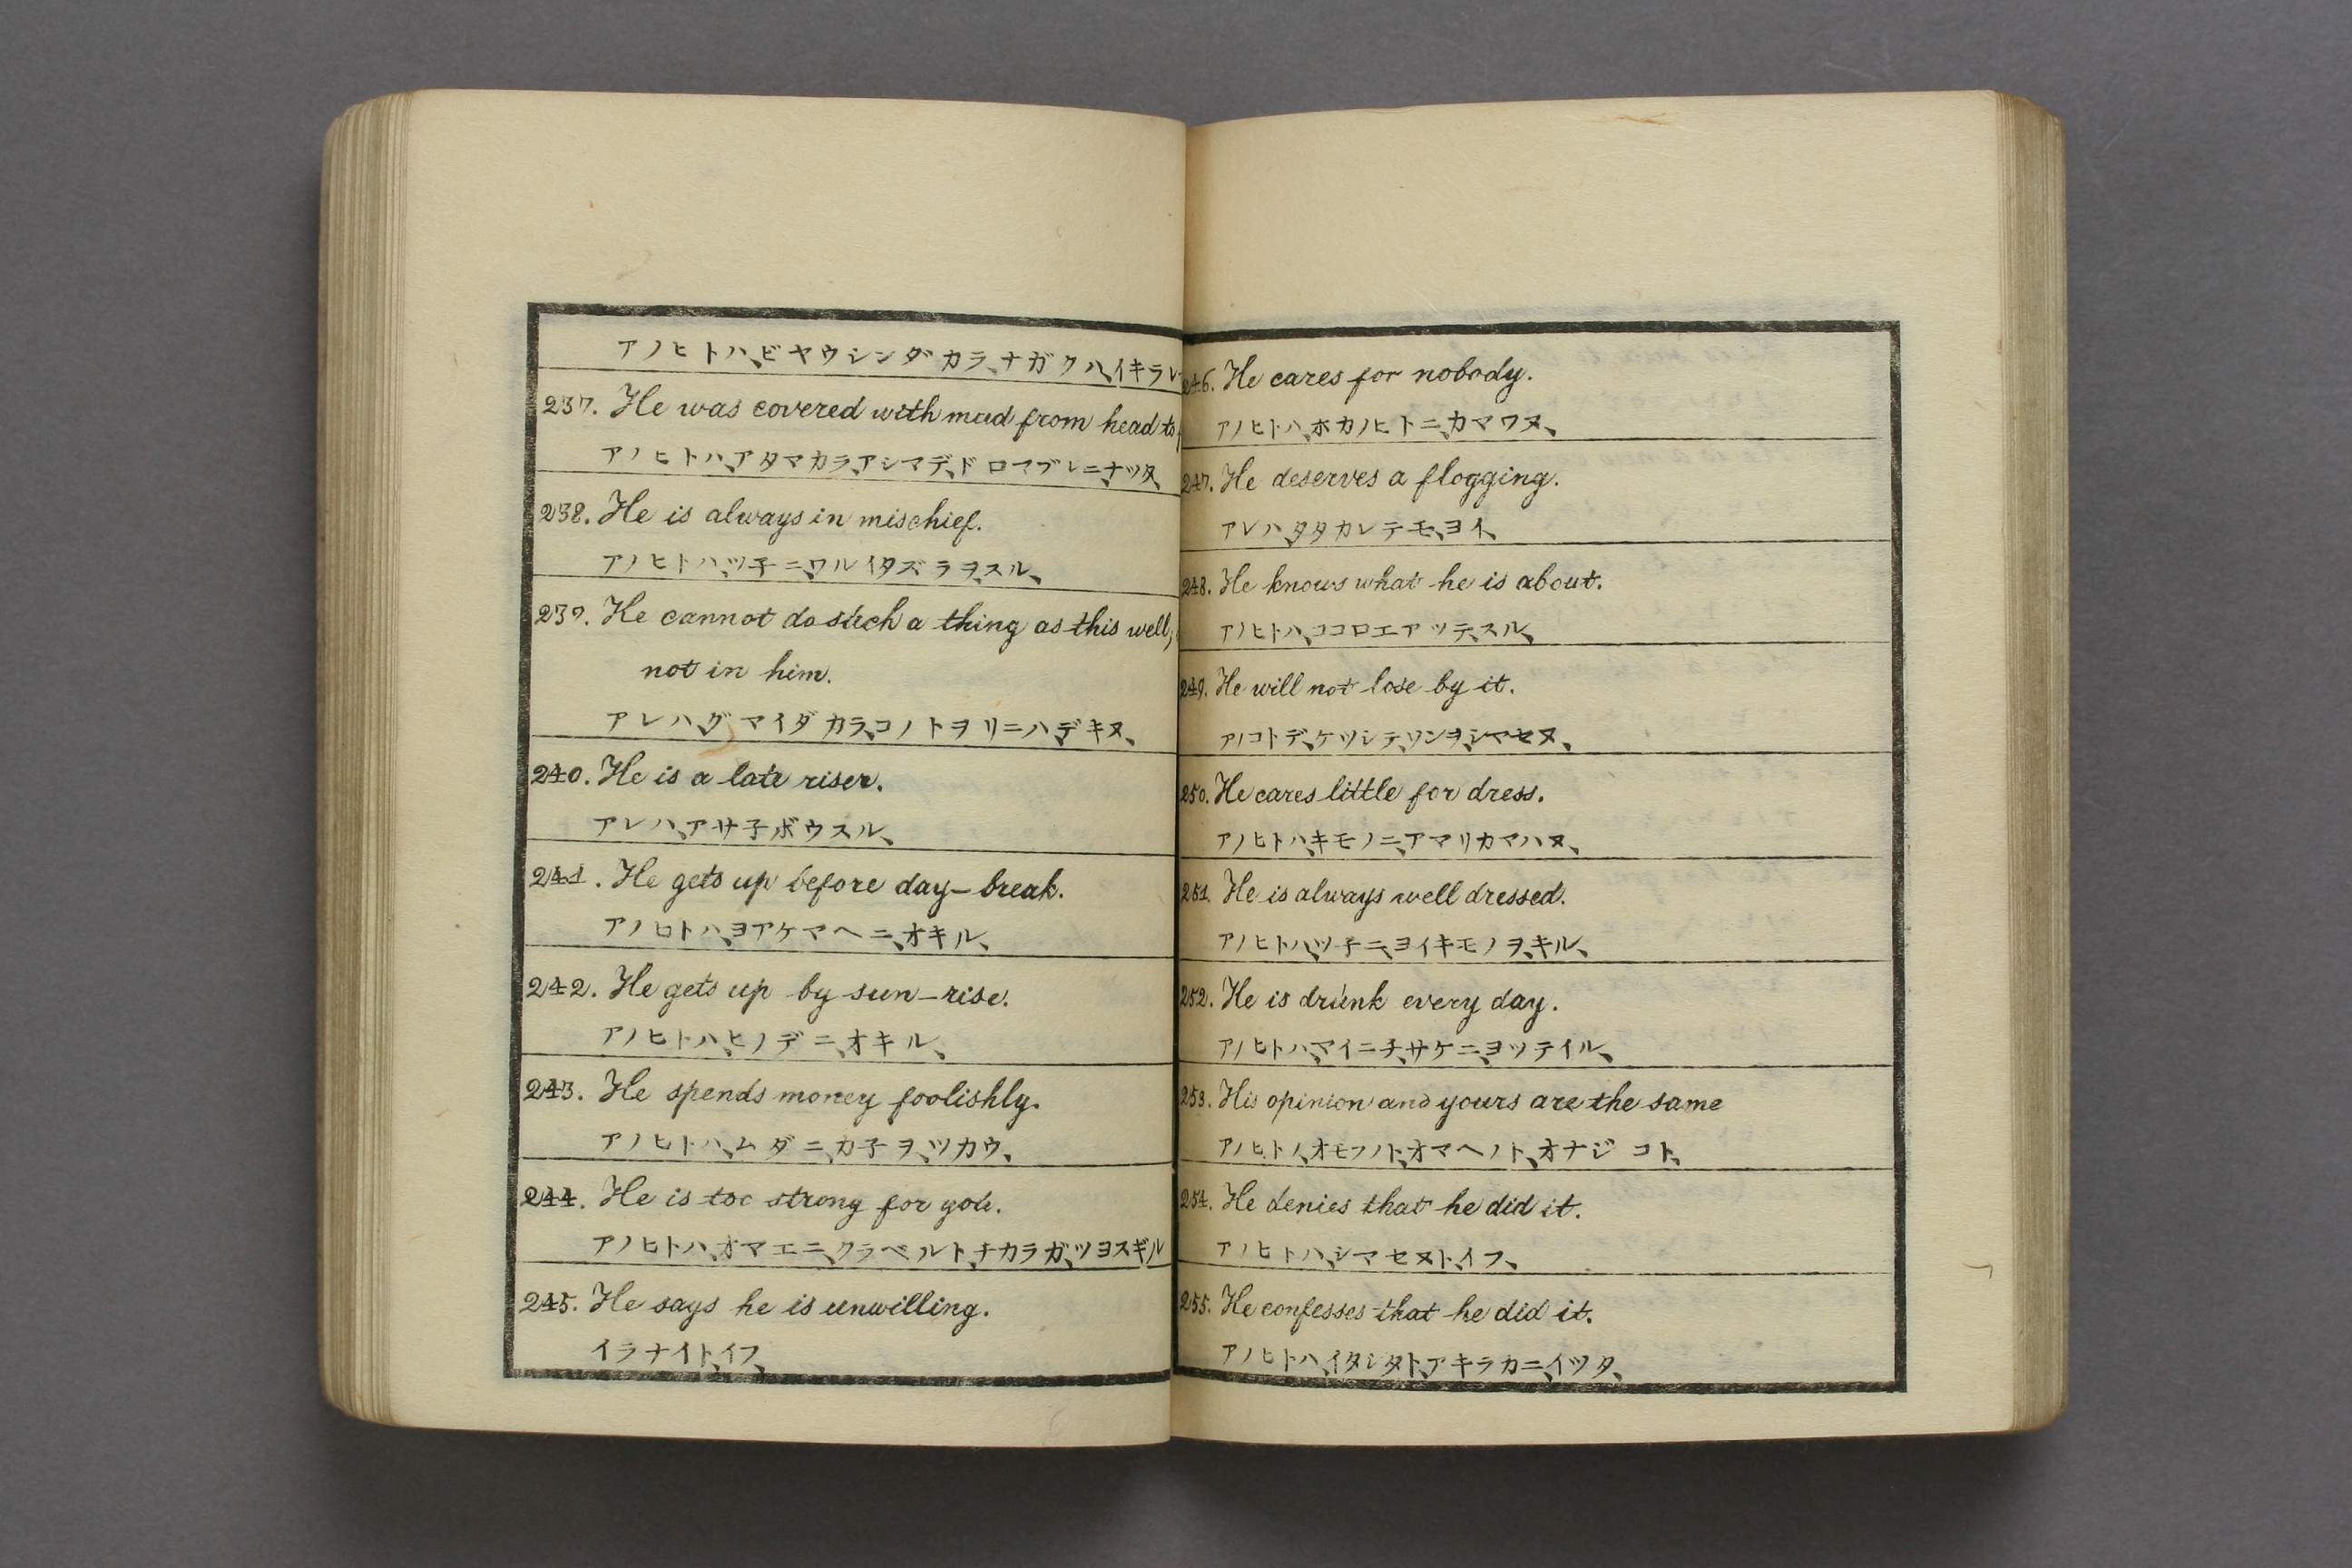 アノヒトハ、ビヤウシンダカラ、ナガクハ、イキラレ
237. He was covered with mud from head to
アノヒトハ、アタマカラ、アシマデ、ドロマブレニ、ナツタ、
238. He is always in mischief.
アノヒトハ、ツ子ニ、ワルイタズラヲ、スル、
239. He cannot do such a thing as this well,
not in him.
アレハ、グマイダカラ、コノトヲリニハ、デキヌ、
240. He is a late riser.
アレハ、アサ子ボウスル、
241. He gets up before day-break.
アノヒトハ、ヨアケマヘニ、オキル、
242. He gets up by sun-rise.
アノヒトハ、ヒノデニ、オキル、
243. He spends money foolishly.
アノヒトハ、ムダニ、カ子ヲ、ツカウ、
244. He is too strong for you.
アノヒトハ、オマエニ、クラベルト、チカラガ、ツヨスギル
245. He says he is unwilling.
イラナイト、イフ、
246. He cares for nobody.
アノヒトハ、ホカノヒトニ、カマワヌ、
247. He deserves a flogging.
アレハ、タタカレテモ、ヨイ、
248. He knows what he is about.
アノヒトハ、ココロエアツテ、スル、
249. He will not lose by it.
アノコトデ、ケツシテ、ソンヲ、シマセヌ、
250. He cares little for dress.
アノヒトハ、キモノニ、アマリカマハヌ、
251. He is always well dressed.
アノヒトハ、ツ子ニ、ヨイキモノヲ、キル、
252. He is drunk every day.
アノヒトハ、マイニチ、サケニ、ヨツテイル、
253. His opinion and yours are the same
アノヒトノ、オモフノト、オマヘノト、オナジコト、
254. He denies that he did it.
アノヒトハ、シマセヌト、イフ、
255. He confesses that he did it.
アノヒトハ、イタシタト、アキラカニ、イツタ、